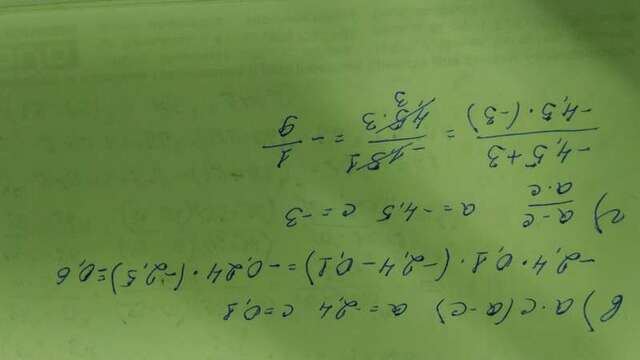 в) a·c(a-c) a=-2,4 c=0,1
-2,4·0,1·(-2,4-0,1)=-0,24·(-2,5)=0,6
г) a-c/a·c a=-4,5 c=-3
-4,5+3/-4,5·(-3) = -1,5 1/4,5·3 3 = -1/9